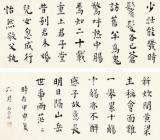 少壯能幾時
鬢髮各已蒼
訪舊半為鬼
驚呼熱中腸
焉知二十載
重上君子堂
昔別君未婚
兒女忽成行
怡然敬父執
新炊間黃粱
主稱會面難
一舉累十觴
十觴亦不醉
感子故意長
明日隔山岳
世事兩茫茫
六月